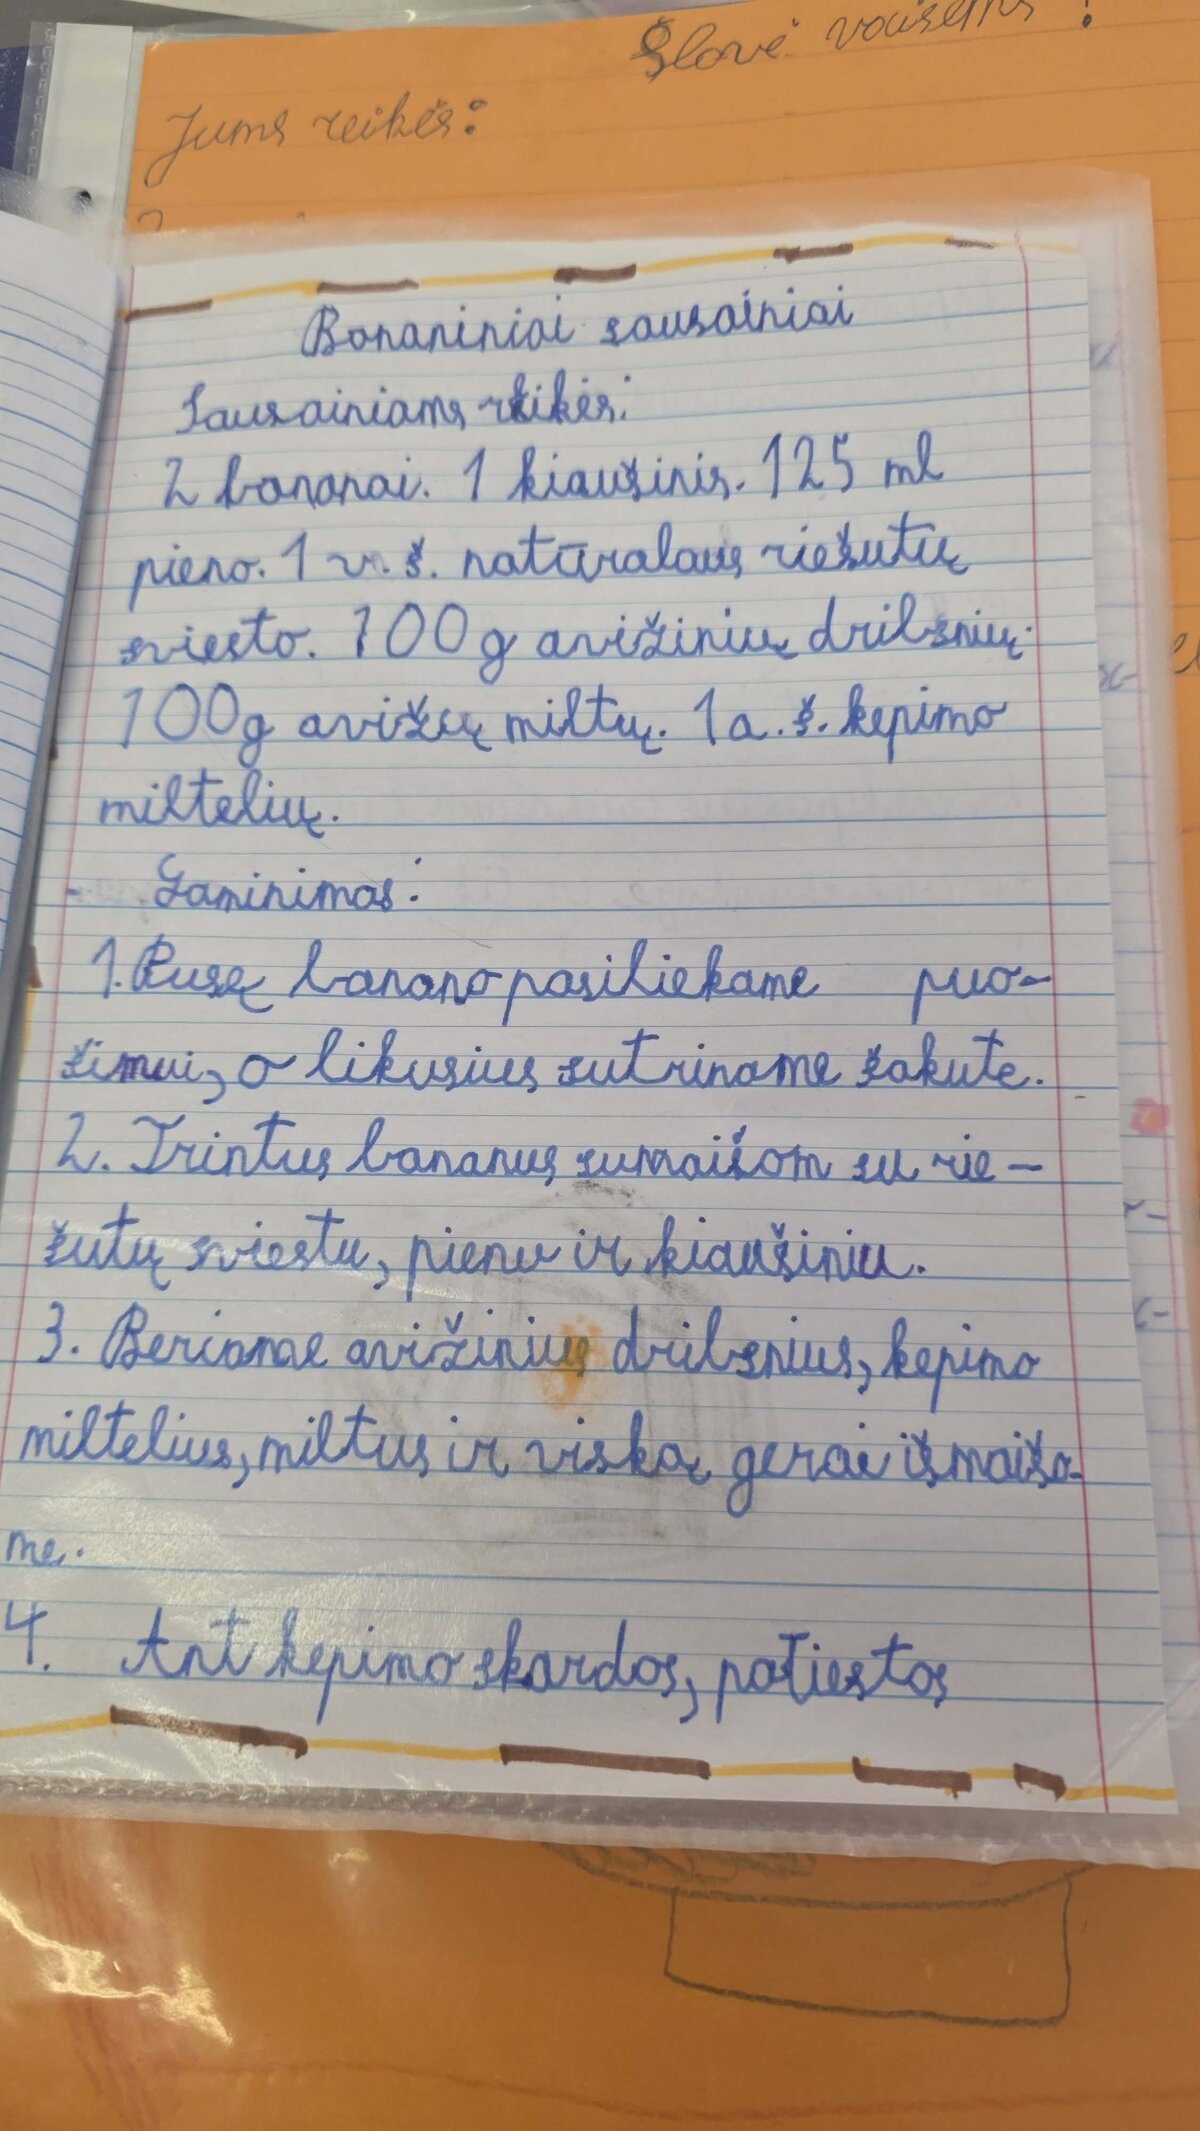 Šlovė vaisems!
Jums reikės:
Bananiniai sausainiai
Sausainiams reikės:
2 bananai. 1 kiaušinis. 125 ml
pieno. 1 v. š. natūralaus riešutų
sviesto. 100g avižinių dribsnių.
100g avižų miltų. 1 a. š. kepimo
miltelių.
Gaminimas:
1. Pusę banano pasiliekame puo-
šimui, o likusius sutriname šakute.
2. Trintus bananus sumaišom su rie-
šutų sviestu, pienu ir kiaušiniu.
3. Beriame avižinius dribsnius, kepimo
miltelius, miltus ir viską gerai išmaišo-
me.
4. Ant kepimo skardos, patiestos